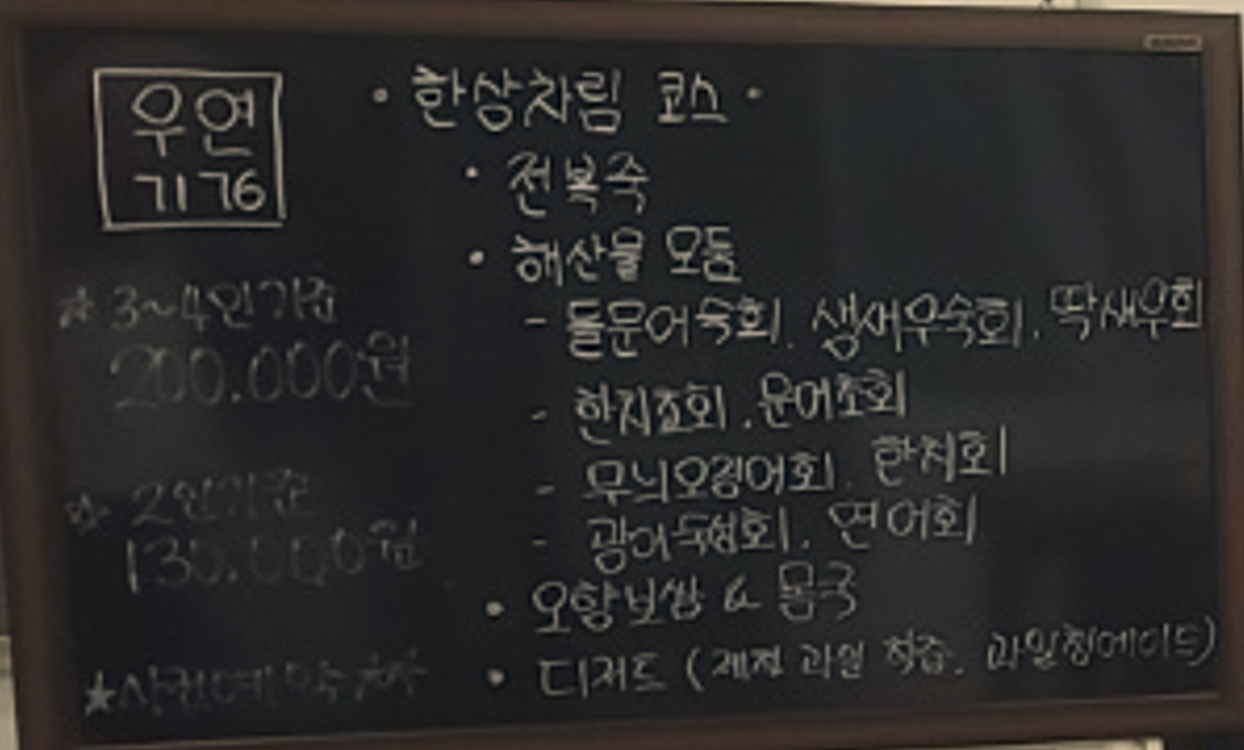 우연
7176
☆ 3~4인기준
200.000원
☆ 2인기준
130.000원
★사전예약
· 한상차림 코스 ·
· 전복죽
· 해산물 모둠
- 돌문어숙회, 생새우숙회, 딱새우회
- 한치초회, 문어초회
- 무늬오징어회, 한치회
- 광어숙성회, 연어회
· 오향보쌈 & 몸국
· 디저트 (제철 과일 착즙, 과일청에이드)